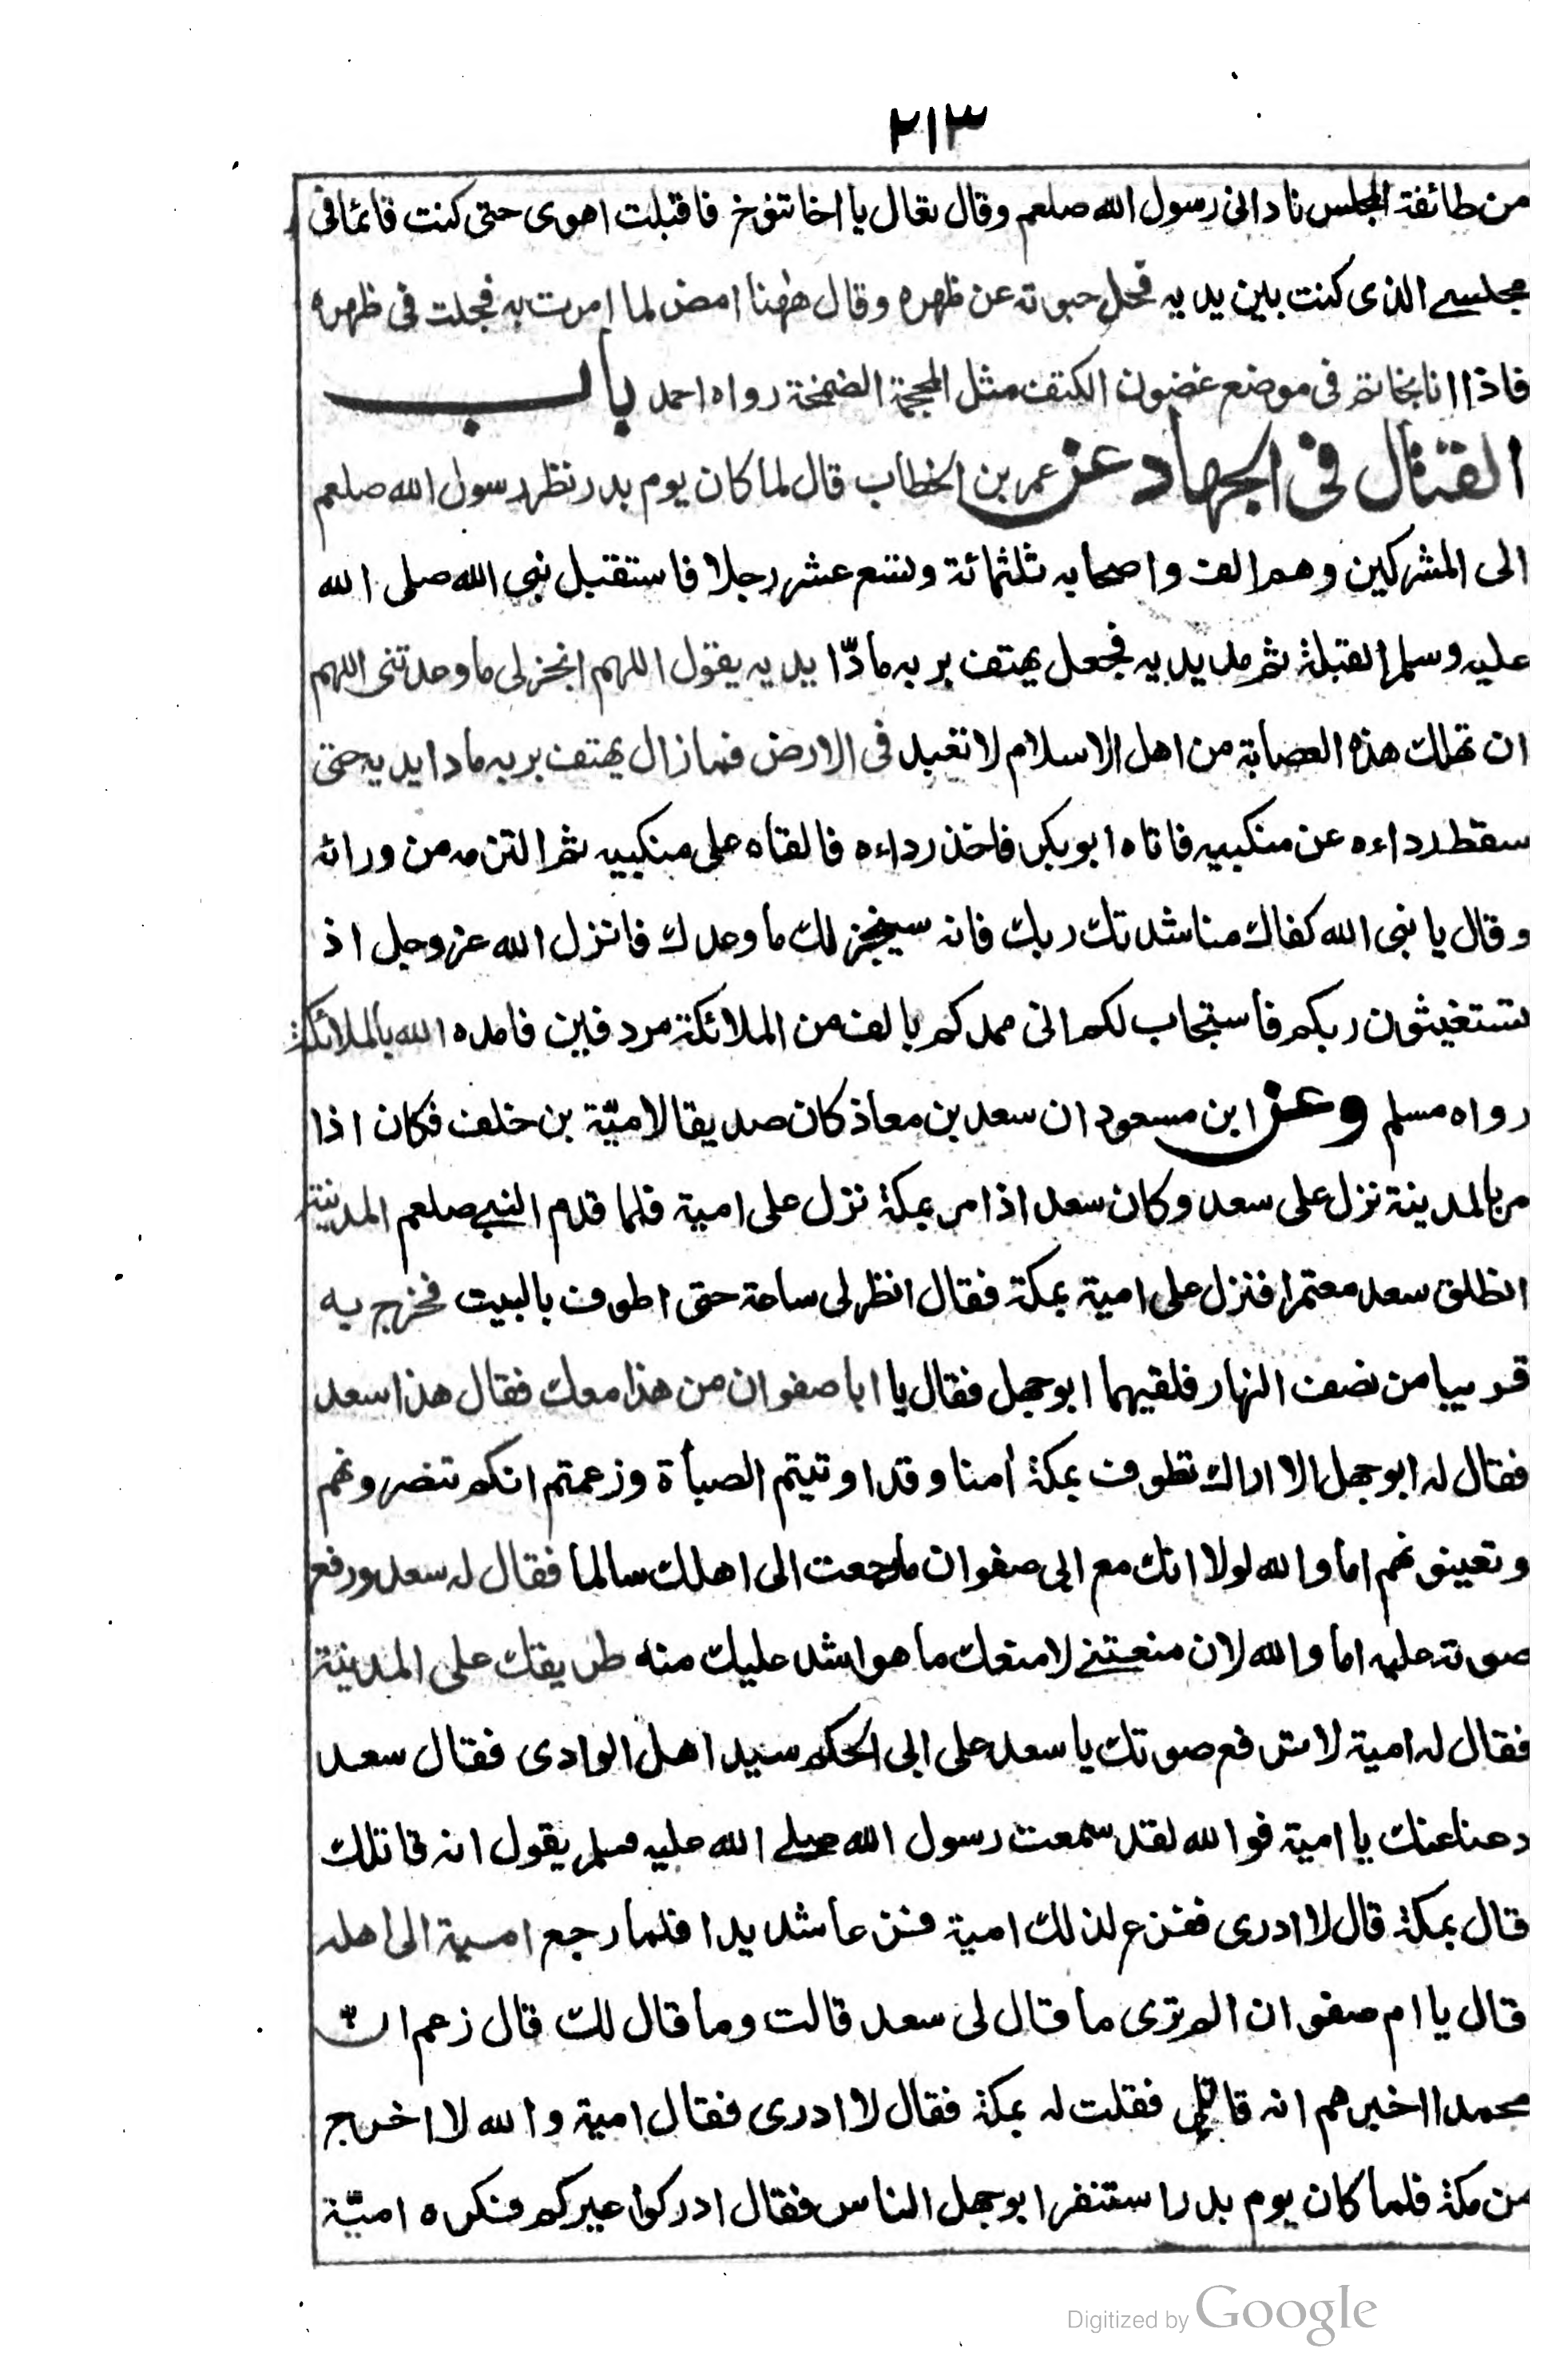 ٢١٣
من طائفة المجلس نادانى رسول الله صلعم وقال تعال يا اخا تنوخ فاقبلت اهوى حتى كنت قائما فى
مجلسے الذى كنت بين يديه فحل حبوته عن ظهره وقال ههنا امض لما امرت به فجلت فى ظهره
فاذا انا بخاتم فى موضع غضون الكتف مثل المحجمة الضخمة رواه احمد باب
القتال فى الجهاد عن عمر بن الخطاب قال لما كان يوم بدر نظر رسول الله صلعم
الى المشركين وهم الف واصحابه ثلثمائة وتسع عشر رجلا فاستقبل نبى الله صلى الله
عليه وسلم القبلة ثم مد يديه فجعل يهتف بربه مادّا يديه يقول اللهم انجز لى ما وعدتنى اللهم
ان تهلك هذه العصابة من اهل الاسلام لا تعبد فى الارض فما زال يهتف بربه مادا يديه حتى
سقط رداءه عن منكبيه فاتاه ابو بكر فاخذ رداءه فالقاه على منكبيه ثم التزمه من ورائه
وقال يا نبى الله كفاك مناشدتك ربك فانه سينجز لك ما وعدك فانزل الله عز وجل اذ
تستغيثون ربكم فاستجاب لكم انى ممدكم بالف من الملائكة مردفين فامده الله بالملائكة
رواه مسلم وعن ابن مسعود ان سعد بن معاذ كان صديقا لاميّة بن خلف فكان اذا
مر بالمدينة نزل على سعد وكان سعد اذا مر بمكة نزل على امية فلما قدم النبے صلعم المدينة
انطلق سعد معتمرا فنزل على امية بمكة فقال انظر لى ساعة حتى اطوف بالبيت فخرج به
قريبا من نصف النهار فلقيهما ابو جهل فقال يا ابا صفوان من هذا معك فقال هذا سعد
فقال له ابو جهل الا اراك تطوف بمكة أمنا وقد اوتيتم الصبأة وزعمتم انكم تنصرونهم
وتعينونهم اما والله لولا انك مع ابى صفوان ما رجعت الى اهلك سالما فقال له سعد ورفع
صوته عليه اما والله لان منعتنے لامنعك ما هو اشد عليك منه طريقك على المدينة
فقال له امية لا ترفع صوتك يا سعد على ابى الحكم سيد اهل الوادى فقال سعد
دعنا عنك يا امية فوالله لقد سمعت رسول الله صلے الله عليه وسلم يقول انه قاتلك
قال بمكة قال لا ادرى ففزع لذلك امية فزعا شديدا فلما رجع امية الى اهله
قال يا ام صفوان الم ترى ما قال لى سعد قالت وما قال لك قال زعم انّ
محمدا اخبرهم انه قاتلى فقلت له بمكة فقال لا ادرى فقال امية والله لا اخرج
من مكة فلما كان يوم بدر استنفر ابو جهل الناس فقال ادركوا عيركم فنكره اميّة
Digitized by Google